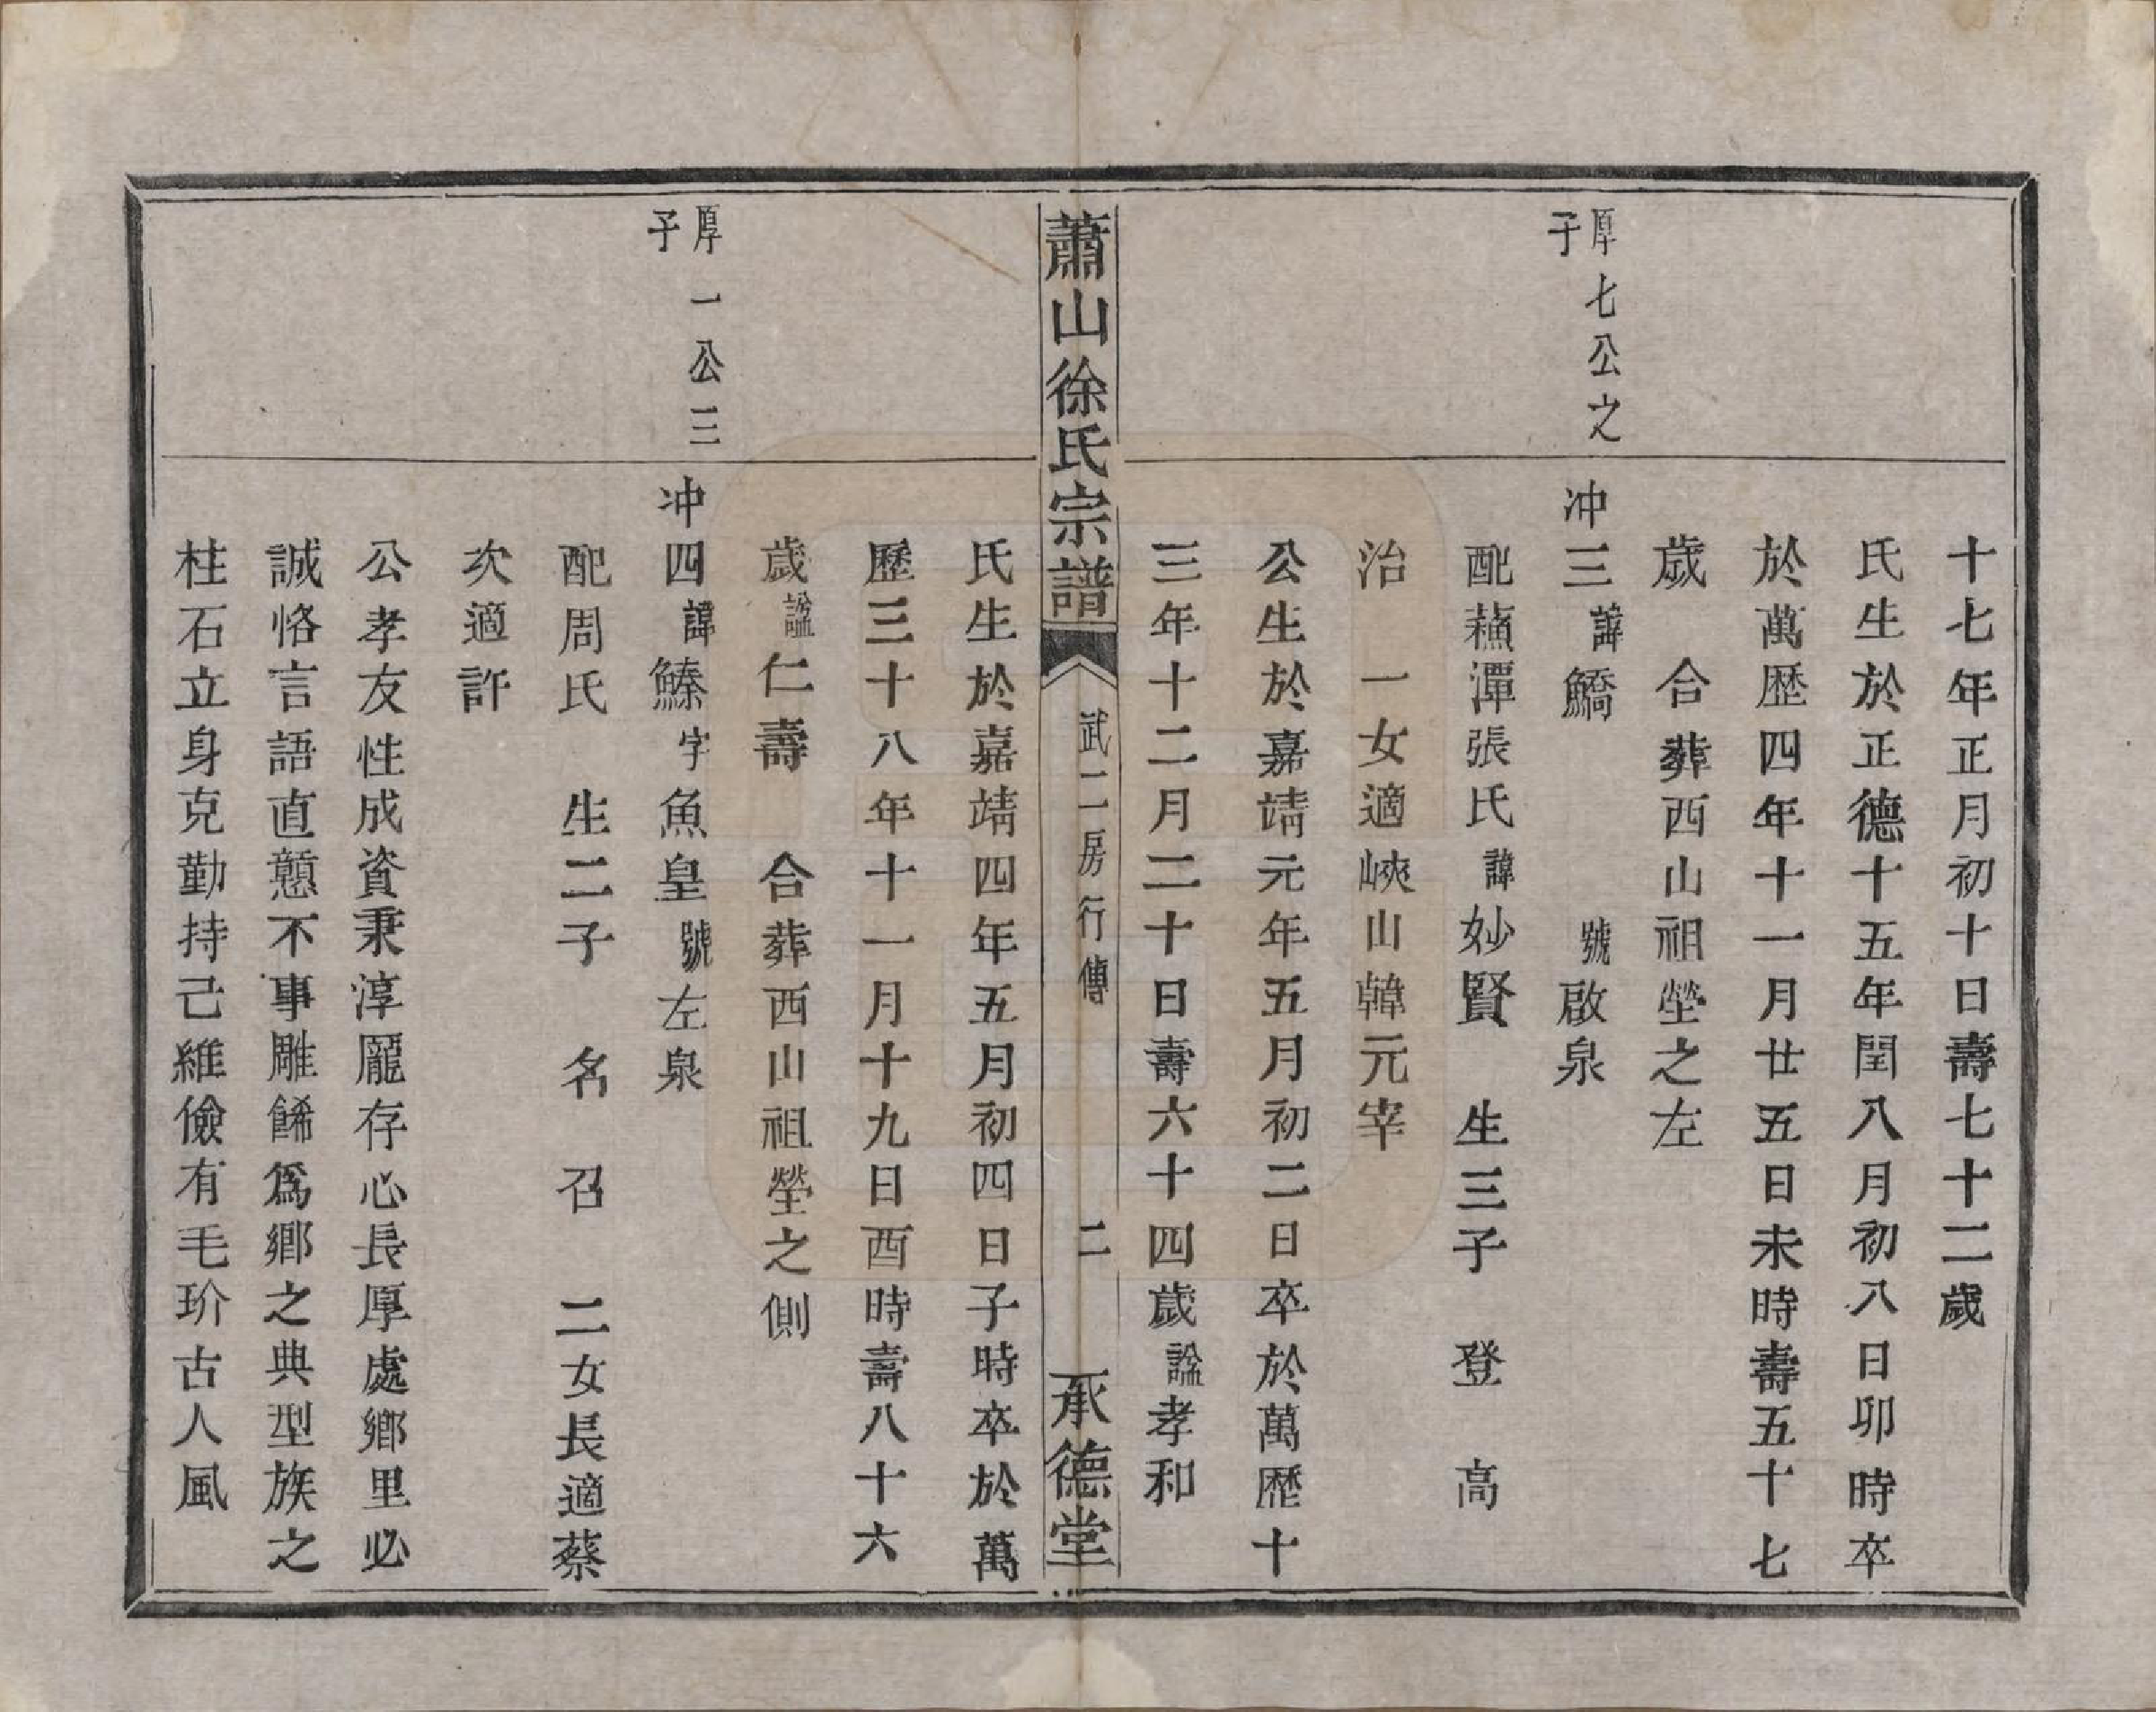 十七年正月初十日壽七十二歲
氏生於正德十五年閏八月初八日卯時卒
於萬歷四年十一月廿五日未時壽五十七
歲　合葬西山祖塋之左
厚七公之
子
冲三諱鱎　號啟泉
配蘓潭張氏諱妙賢　生三子　登　高
治　一女適峽山韓元宰
公生於嘉靖元年五月初二日卒於萬歷十
三年十二月二十日壽六十四歲謚孝和
蕭山徐氏宗譜
武二房行傳
二
承德堂
氏生於嘉靖四年五月初四日子時卒於萬
歷三十八年十一月十九日酉時壽八十六
歲謚仁壽　合葬西山祖塋之側
厚一公三
子
冲四諱鰊字魚皇號左泉
配周氏　生二子　名　召　二女長適蔡
次適許
公孝友性成資秉淳龎存心長厚處鄉里必
誠恪言語直戇不事雕餙爲鄉之典型族之
柱石立身克勤持己維儉有毛玠古人風